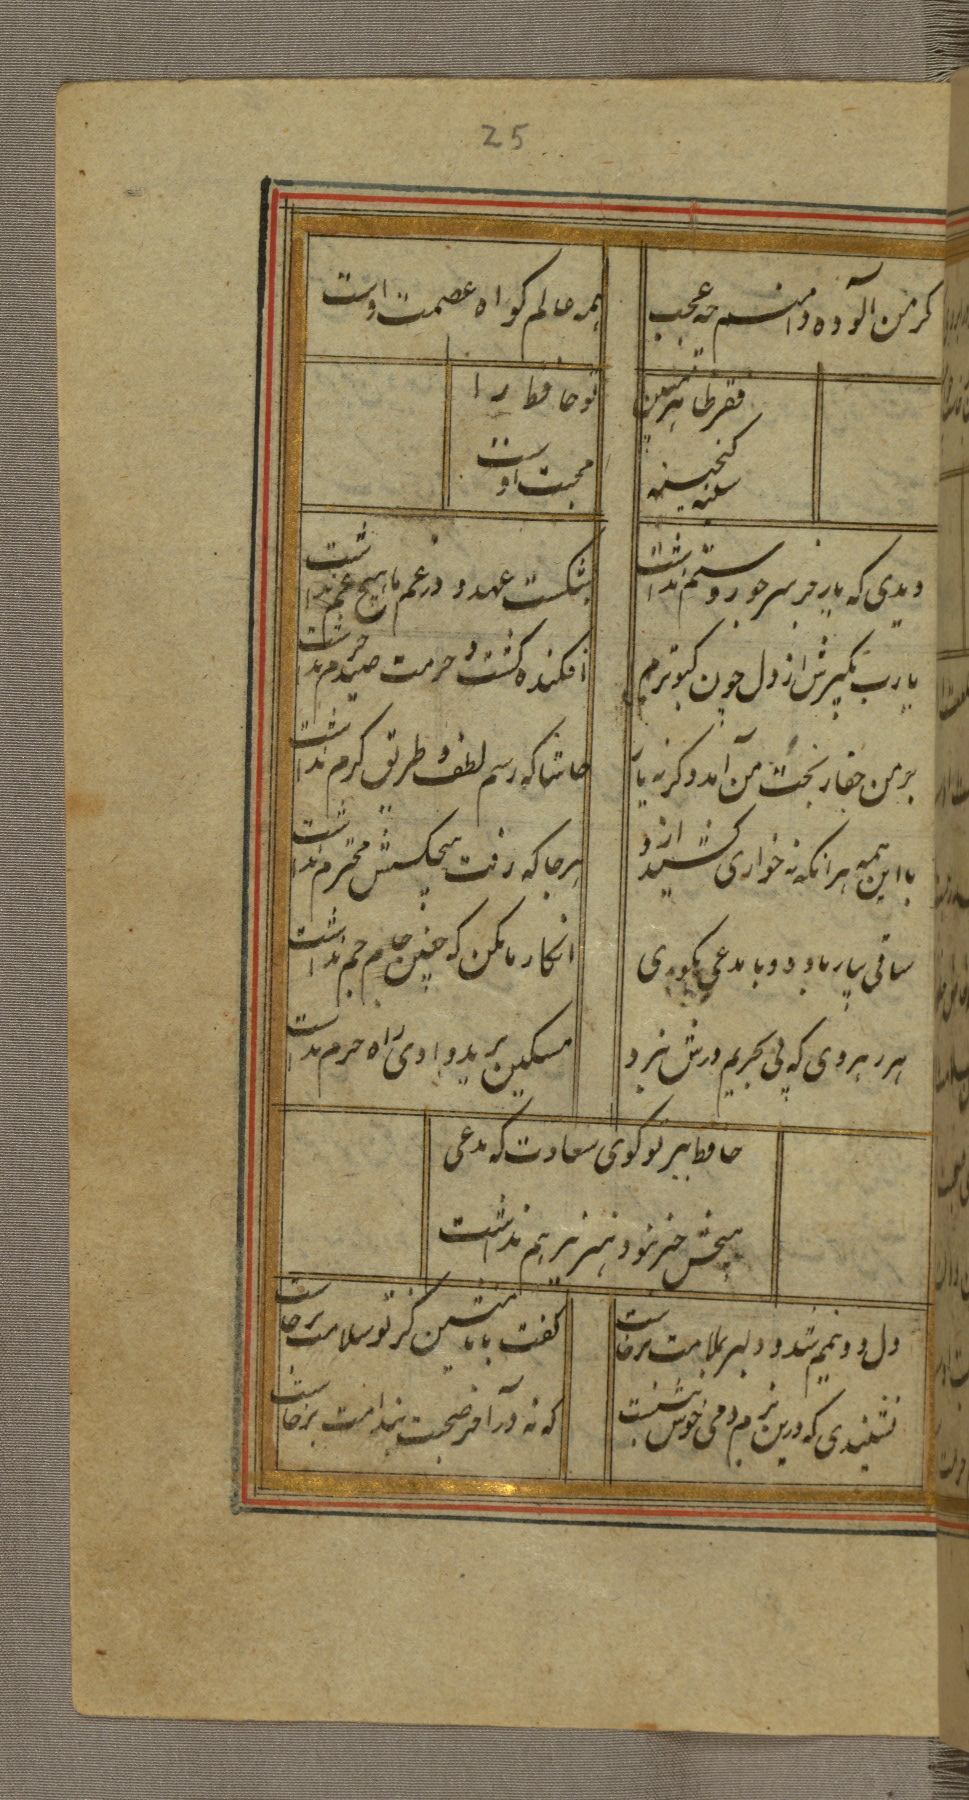 25
کر من آلوده دامنم چه عجب
همه عالم کواه عصمت اوست
فقر ظاهر مبین
تو حافظ را
سینه کنجینه
محبت اوست
دیدی که یار جز سر جور و ستم نداشت
بشکست عهد و از غم ما هیچ غم نداشت
یا رب مکیرش ار دل چون کبوترم
افکند و کشت و حرمت صید حرم نداشت
بر من جفا ز بخت من آمد وکرنه یار
حاشا که رسم لطف و طریق کرم نداشت
با این همه هرانکه نه خواری کشید ازو
هرجا که رفت هیچکسش محترم نداشت
ساقی بیار باده و با مدعی بکوی
انکار ما مکن که چنین جام جم نداشت
هر رهروی که پی بحریم درش نبرد
مسکین برید وادی و راه حرم نداشت
حافظ ببر تو کوی سعادت که مدعی
هیچش خبر نبود و هنر نیز هم نداشت
دل و دینم شد و دلبر بملامت برخاست
کفت با ما منشین کز تو سلامت برخاست
نشنیدی که درین بزم دمی خوش بنشست
که نه در آخر صحبت بندامت برخاست